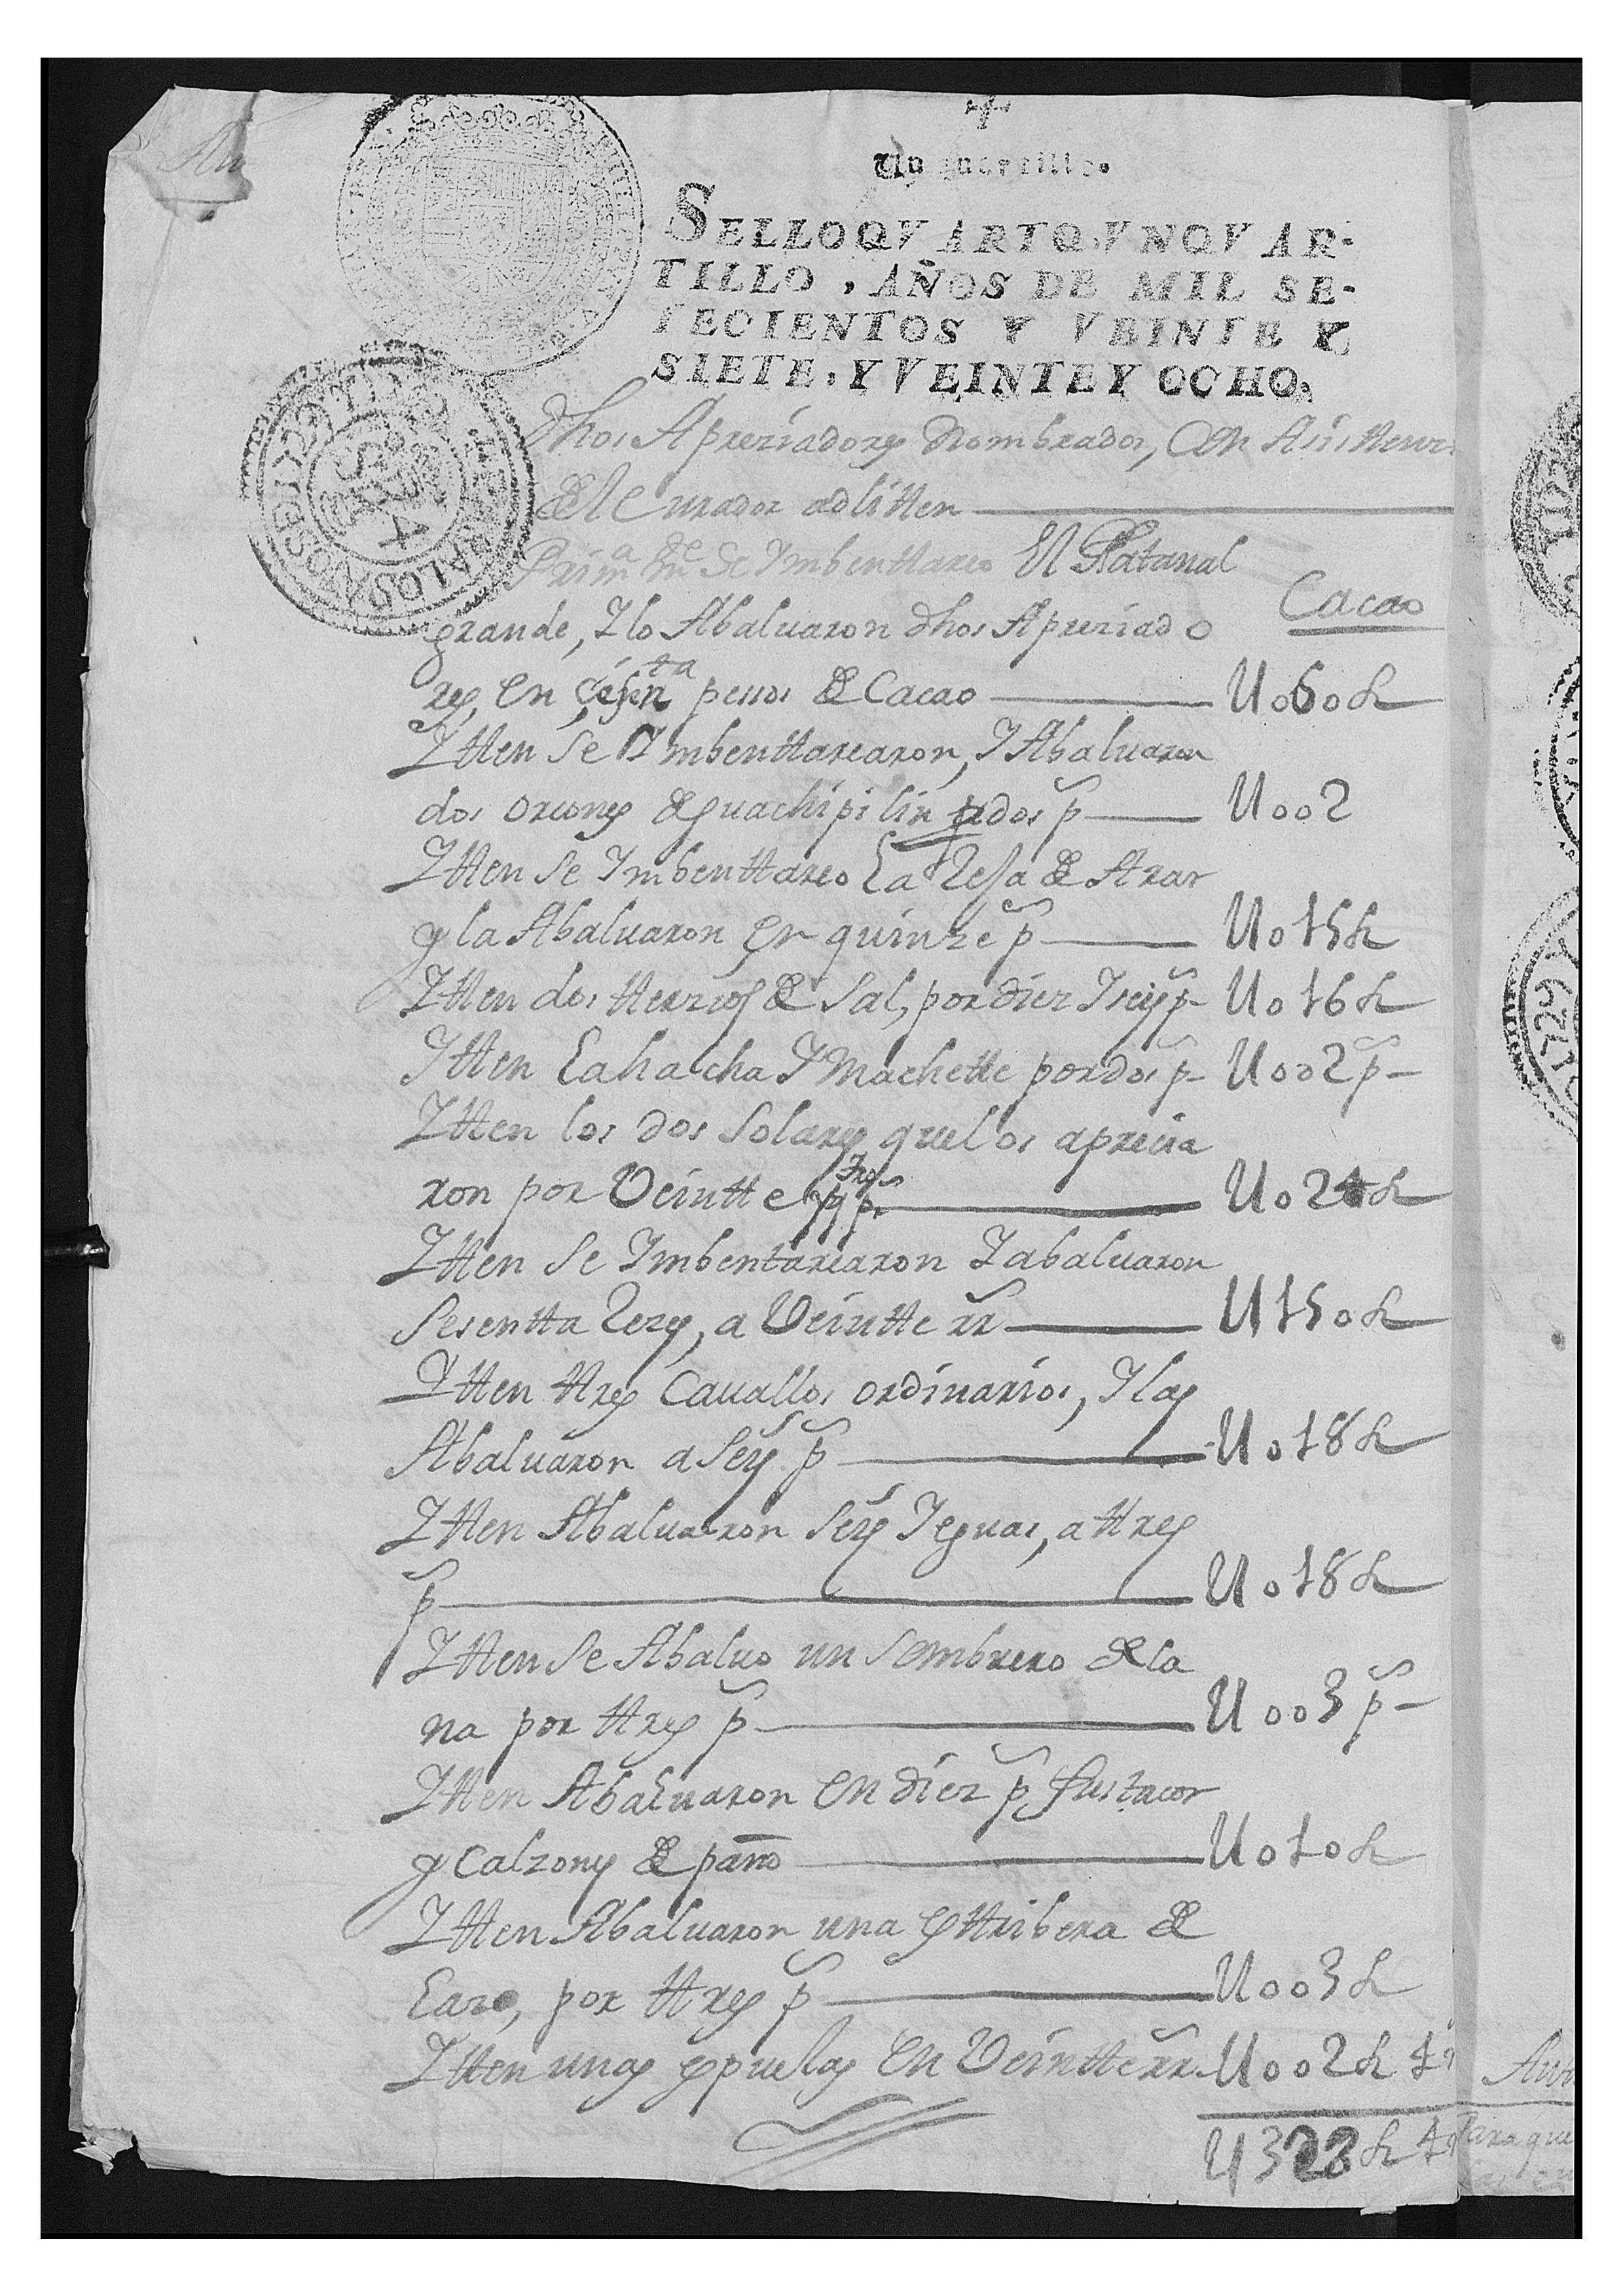 Un quartillo.
SELLO QVARTO, VN QVAR-
TILLO, AÑOS DE MIL SE-
TECIENTOS Y VEINTE Y
SIETE, Y VEINTE Y OCHO.
dhos Apreziadores Nombrados, Con
del Curador adlitten
Prim.a m.te Se Ymbenttareo El Platanal
Cacao
grande, Y lo Abaluaron dhos Apreziado
res, en pessos de Cacao U060 p
Ytten Se Ymbenttarearon, Y Abaluaron
dos orcones de guachipilin dos p.s U002
Ytten Se Ymbenttareo la Reja de Arar
y la Abaluaron en quinze p.s U015 p
Ytten dos tterzios de Sal, por diez Y seis p.s U016 p
Ytten la hacha Y Machette por dos p.s U002 p.s
Ytten los dos Solares que los aprecia
ron por Veintte p.s U024 p
Ytten Se Ymbentarearon Y abaluaron
Sesentta Rezes, a Veintte rr.s U150 p
Ytten ttres Cauallos ordinarios, Y las
Abaluaron a Seis p.s U018 p
Ytten Abaluaron Seis Yeguas, a ttres
p.s U018 p
Ytten Se Abaluo un Sombrero de la
na por ttres p.s U003 p.s
Ytten Abaluaron en diez p.s
y Calzones de paño U010 p
Ytten Abaluaron una esttribera de
Lazo, por ttres p.s U003 p
Ytten unas espuelas en Veintte rr.s U002 p 4
U323 p 4
Para que